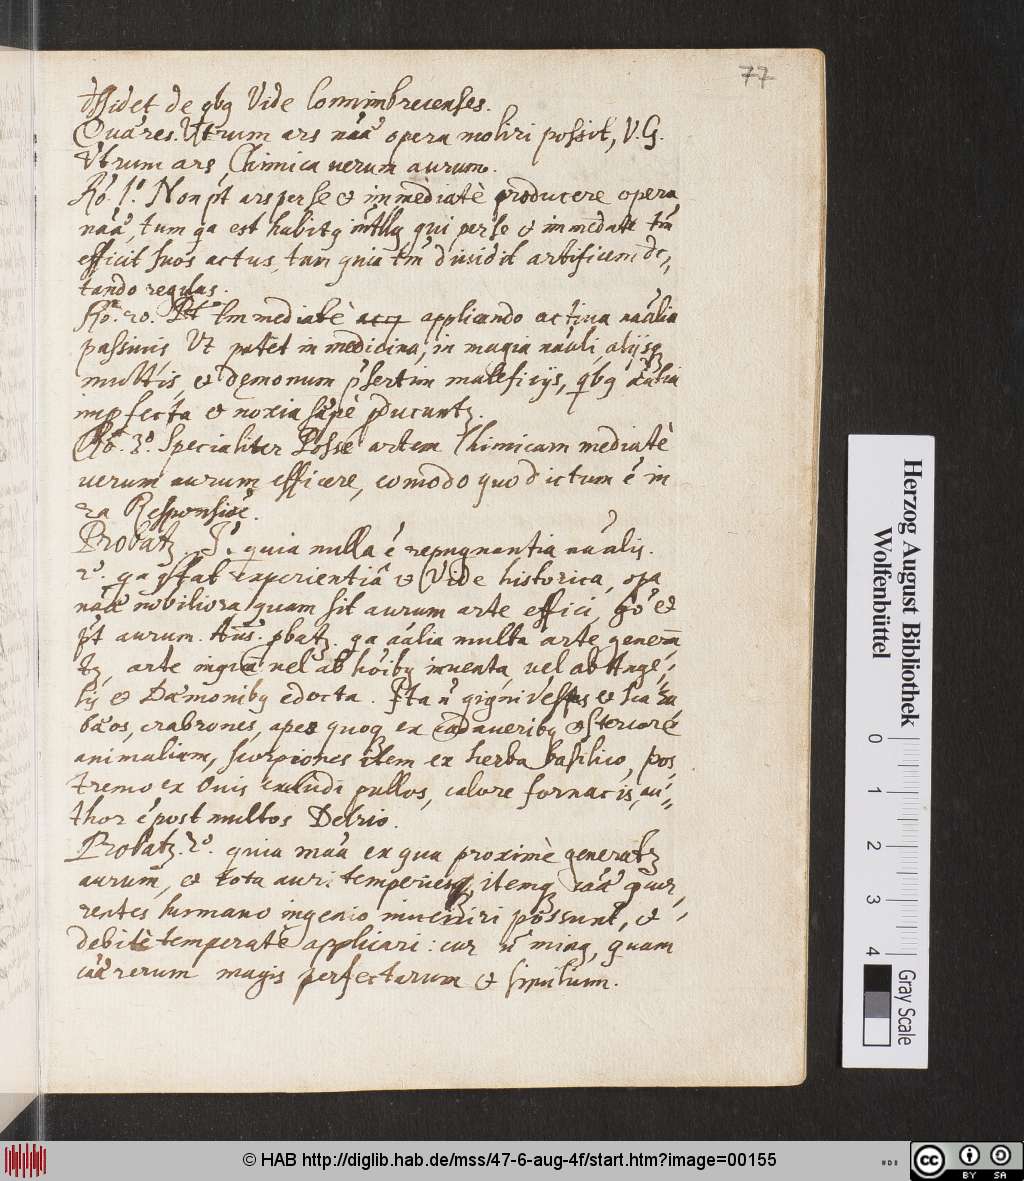 77
de qbq Vide Conimbrecenses.
Quares. Vtrum ars náã opera moliri possit, V.G.
Vtrum ars Chimica uerum aurum.
Rõ. 1.º Non pt ars per se & immediatè producere opera
náã, tum qa est habitq qui per se & immedate tm̃
efficit suos actus, tum quia tm̃ artificem dc⸗
tando regulas.
Rõ. 2o. Pt tm mediatè applicando actiua náalia
passiuis Vt patet in medicina, in magia náali, alijsq
multis, & dęmonum p̃sertim maleficijs, qbq
impfecta & noxia sæpè pducuntz.
Rõ. 3.º Specialiter Posse artem Chimicam mediatè
uerum aurum efficere, eo modo quo dictum é in
2a Responsiõe.
Probatz. 1.º quia nulla é repugnantia náalis.
2.º qa experientiâ & Vide historica, opa
náã nobiliora quam sit aurum arte effici, gõ &
pt aurum. Ans. pbatz. qa aalia multa arte genera͠
tz, arte inquã uel ab hõibq inuenta, uel ab Ange⸗
lis & Dæmonibq edocta. Ita ñ gigni Vespas & scara
bæos, crabrones, apes quoq ex cadaueribq & stercore
animalium, scorpiones item ex herba basilico, pos⸗
tremo ex Ouis excludi pullos, calore fornacis, au⸗
thor é post multos Delrio.
Probatz. 2.º quia máã ex qua proximè generatz
aurum, & tota auri temperiesq, itemq cáã
rentes humano ingenio inueniri possunt, &
debitè temperatè applicari: cur ñ minq, quam
cáã rerum magis perfectarum &
Herzog August Bibliothek
Wolfenbüttel
0 1 2 3 4
Gray Scale
© HAB http://diglib.hab.de/mss/47-6-aug-4f/start.htm?image=00155
cc BY SA